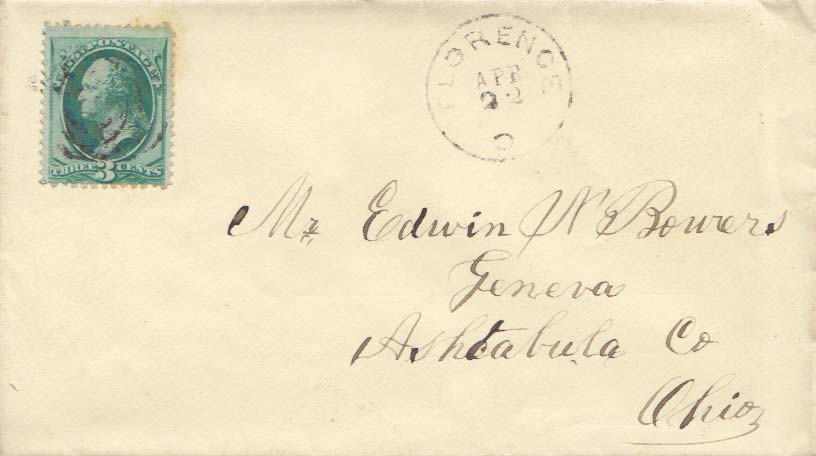 U.S. POSTAGE
THREE 3 CENTS
FLORENCE
APR
22
O
Mr Edwin W Bowers
Geneva
Ashtabula Co
Ohio